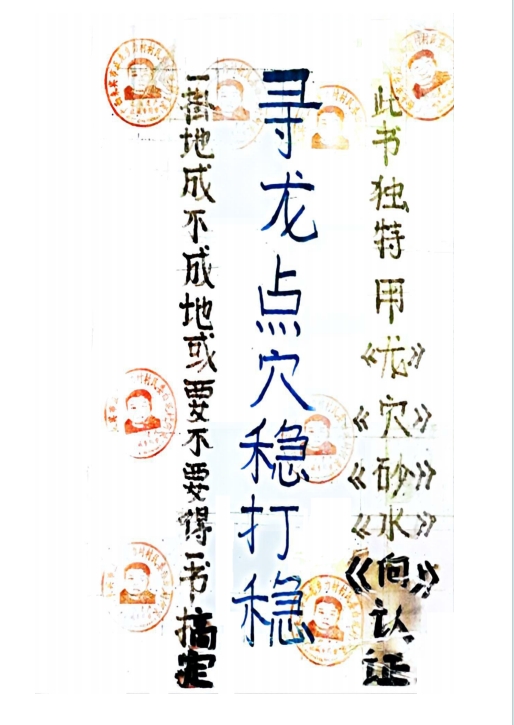 此书独特用《龙》《穴》《砂》《水》《向》认证
寻龙点穴稳打稳
一凿地成不成地或要不要得一书搞定